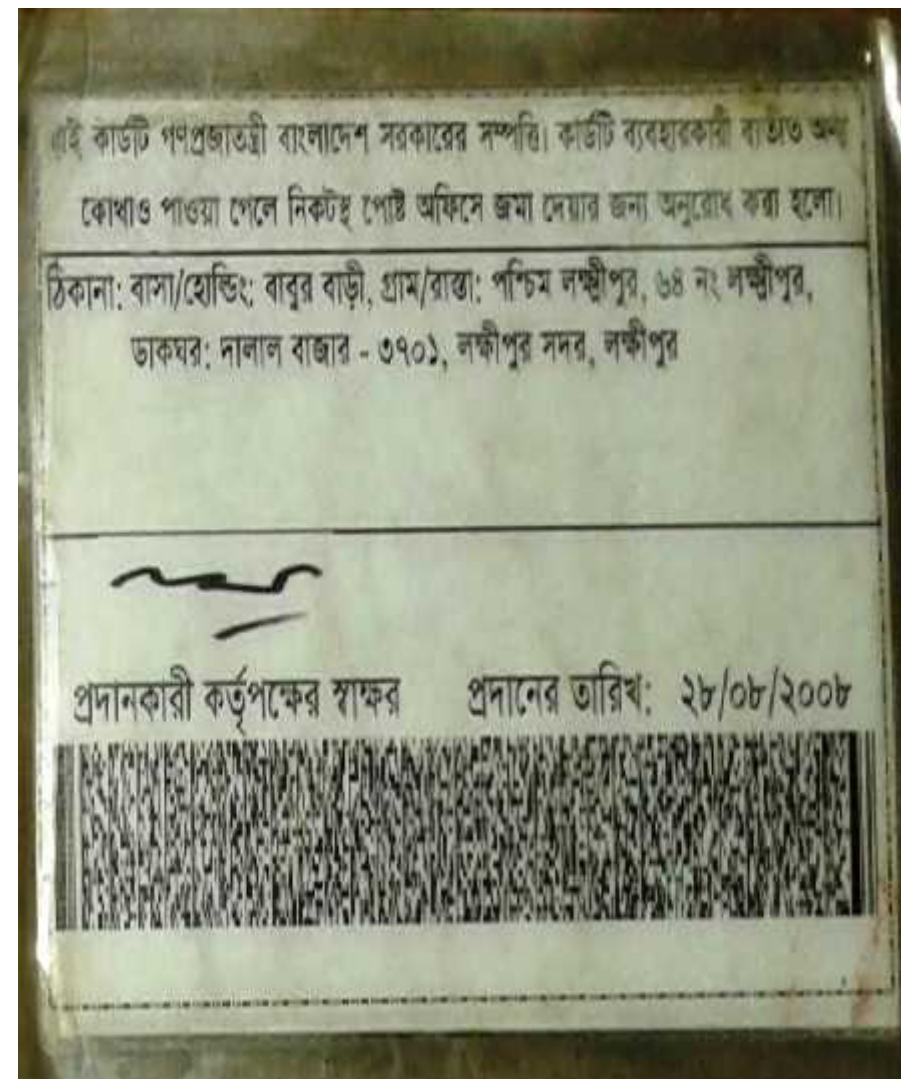 এই কার্ডটি গণপ্রজাতন্ত্রী বাংলাদেশ সরকারের সম্পত্তি। কার্ডটি ব্যবহারকারী ব্যতীত অন্য
কোথাও পাওয়া গেলে নিকটস্থ পোষ্ট অফিসে জমা দেয়ার জন্য অনুরোধ করা হলো।
ঠিকানা: বাসা/হোল্ডিং: বাবুর বাড়ী, গ্রাম/রাস্তা: পশ্চিম লক্ষ্মীপুর, ৬৪ নং লক্ষ্মীপুর,
ডাকঘর: দালাল বাজার - ৩৭০১, লক্ষীপুর সদর, লক্ষীপুর
প্রদানকারী কর্তৃপক্ষের স্বাক্ষর প্রদানের তারিখ: ২৮/০৮/২০০৮